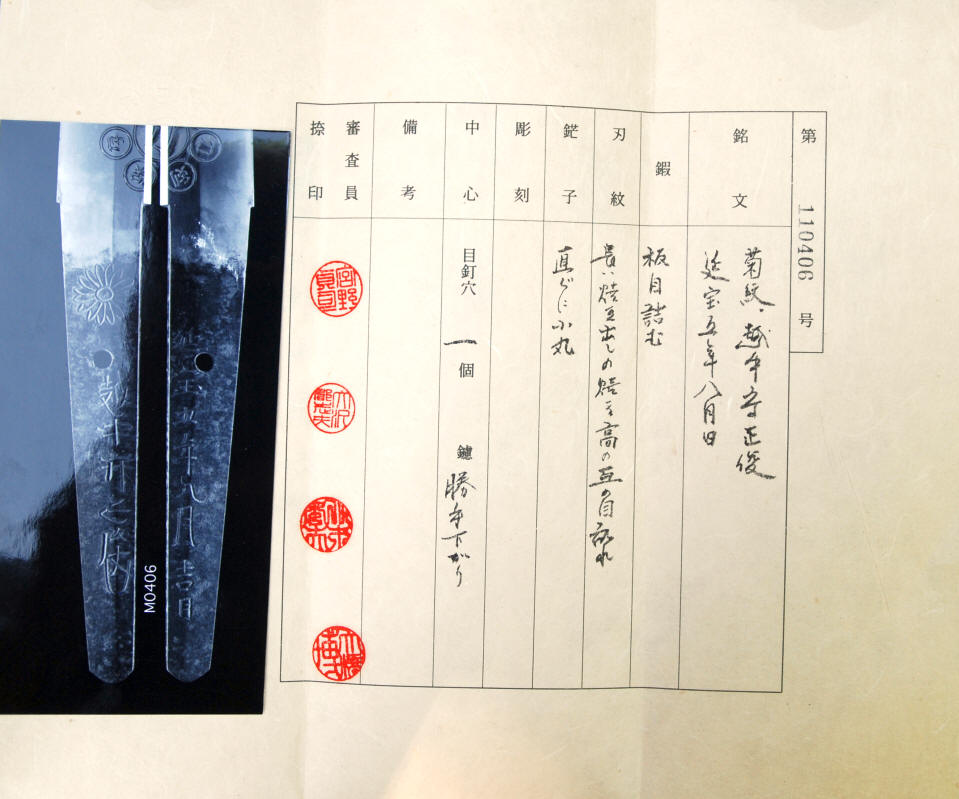 第 110406 号
銘文
菊紋、越中守正俊
延宝五年八月日
鍜
板目詰む
刃紋
長い焼き出しの焼き高の互の目乱れ
鋩子
直ぐに小丸
彫刻
中心
目釘穴 一個 鑢 勝手下がり
備考
審査員
捺印
宮野
M0406
宝五年八月吉日
越中守正俊